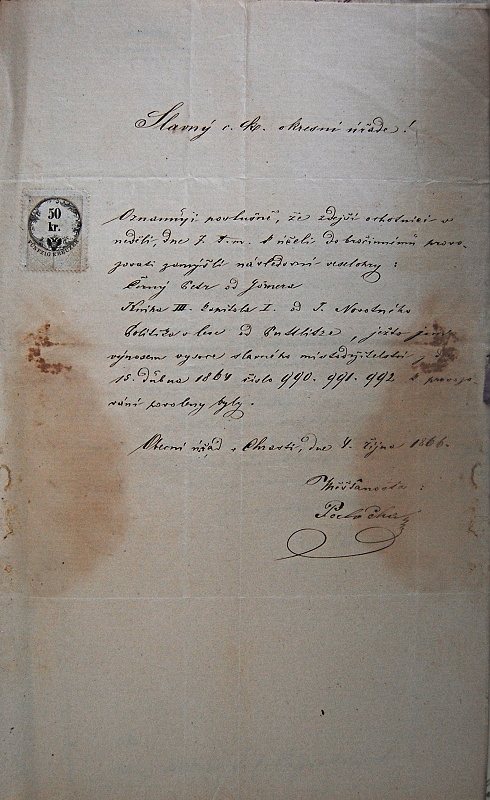 Slavný c. k. okresní úřade!
50
kr.
Oznamuji poslušně, že zdejší ochotníci v
neděli, dne 7. t. m. k účeli dobročinnému provo-
zovati zamýšlí následovní veselohry:
Černý Petr od Görnera
Kniha III. kapitola I. od J. Novotného
Politika v lese od Puttlitze, ježto
výnosem vysoce slavného místodržitelství
15. dubna 1864 číslo 990. 991. 992 k provozo-
vání povoleny byly.
Obecní úřad v Chrasti, dne 4. října 1866.
Měšťanosta: